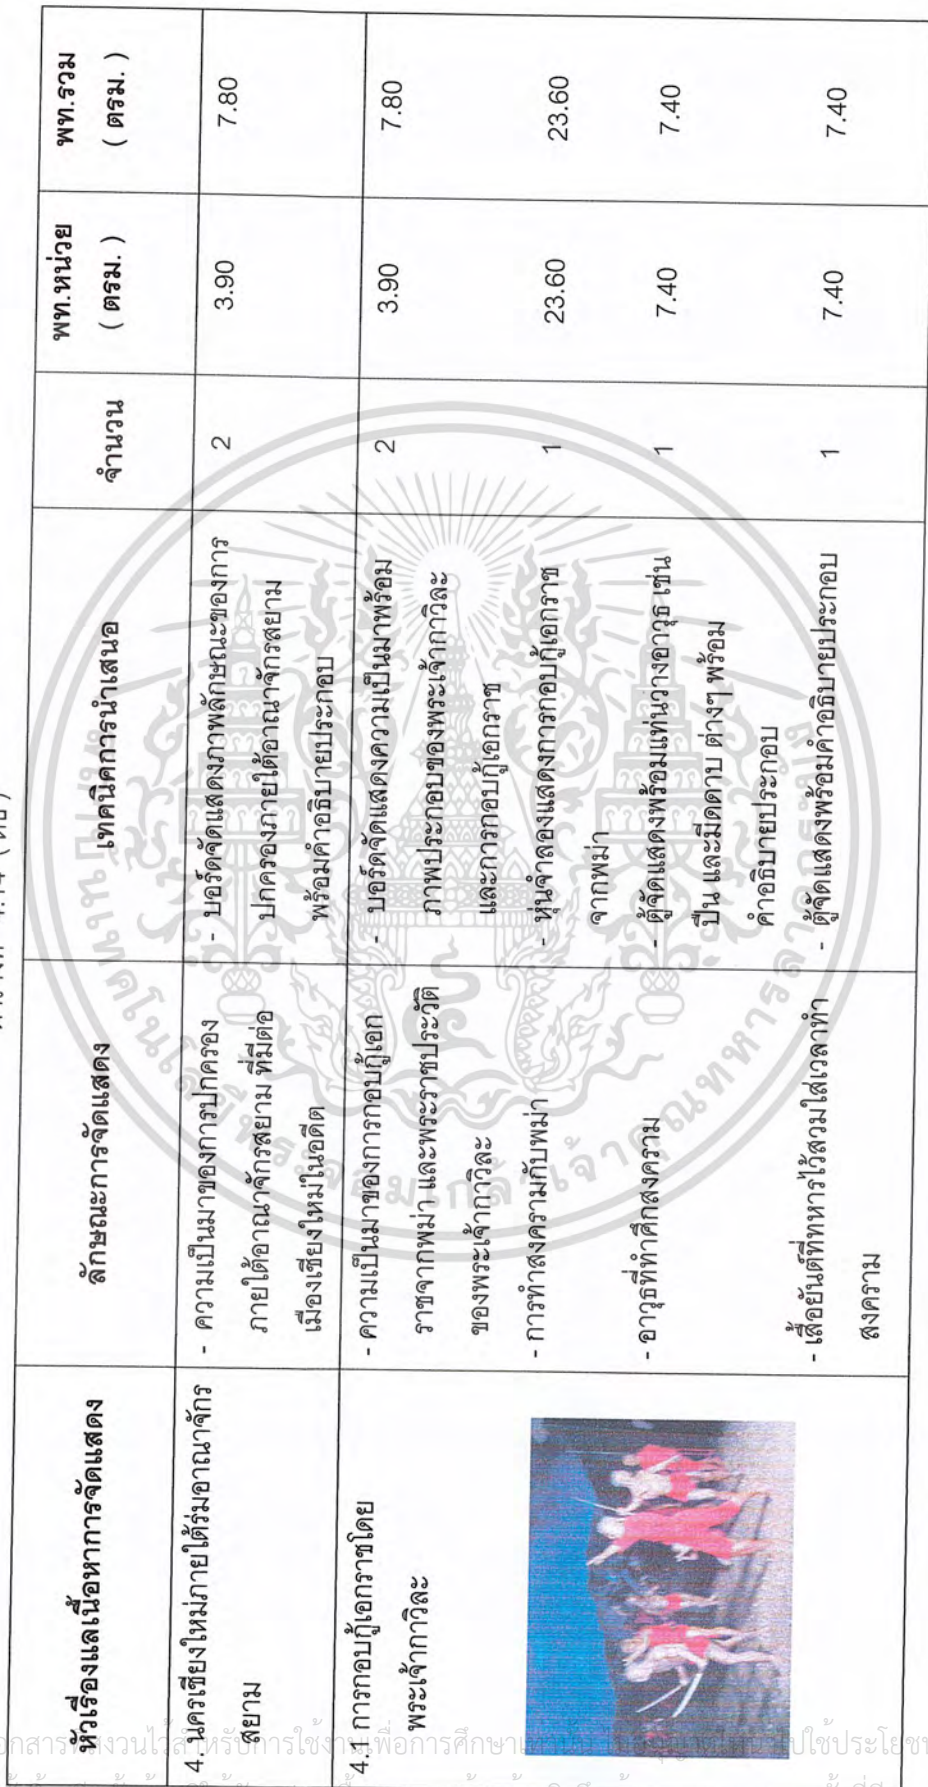 หัวเรื่องแลเนื้อหาการจัดแสดง
ลักษณะการจัดแสดง
เทคนิคการนำเสนอ
จำนวน
พท.หน่วย
( ตรม. )
พท.รวม
( ตรม. )
4. นครเชียงใหม่ภายใต้ร่มอาณาจักร
สยาม
- ความเป็นมาของการปกครอง
ภายใต้อาณาจักรสยาม ที่มีต่อ
เมืองเชียงใหม่ในอดีต
- บอร์ดจัดแสดงภาพลักษณะของการ
ปกครองภายใต้อาณาจักรสยาม
พร้อมคำอธิบายประกอบ
2
3.90
7.80
4.1 การกอบกู้เอกราชโดย
พระเจ้ากาวิละ
- ความเป็นมาของการกอบกู้เอก
ราชจากพม่า และพระราชประวัติ
ของพระเจ้ากาวิละ
- บอร์ดจัดแสดงความเป็นมาพร้อม
ภาพประกอบของพระเจ้ากาวิละ
และการกอบกู้เอกราช
2
3.90
7.80
- การทำสงครามกับพม่า
- หุ่นจำลองแสดงการกอบกู้เอกราช
จากพม่า
1
23.60
23.60
- อาวุธที่ทำศึกสงคราม
- ตู้จัดแสดงพร้อมแท่นวางอาวุธ เช่น
ปืน และมีดดาบ ต่างๆ พร้อม
คำอธิบายประกอบ
1
7.40
7.40
- เสื้อยันต์ที่ทหารไว้สวมใส่เวลาทำ
สงคราม
- ตู้จัดแสดงพร้อมคำอธิบายประกอบ
1
7.40
7.40